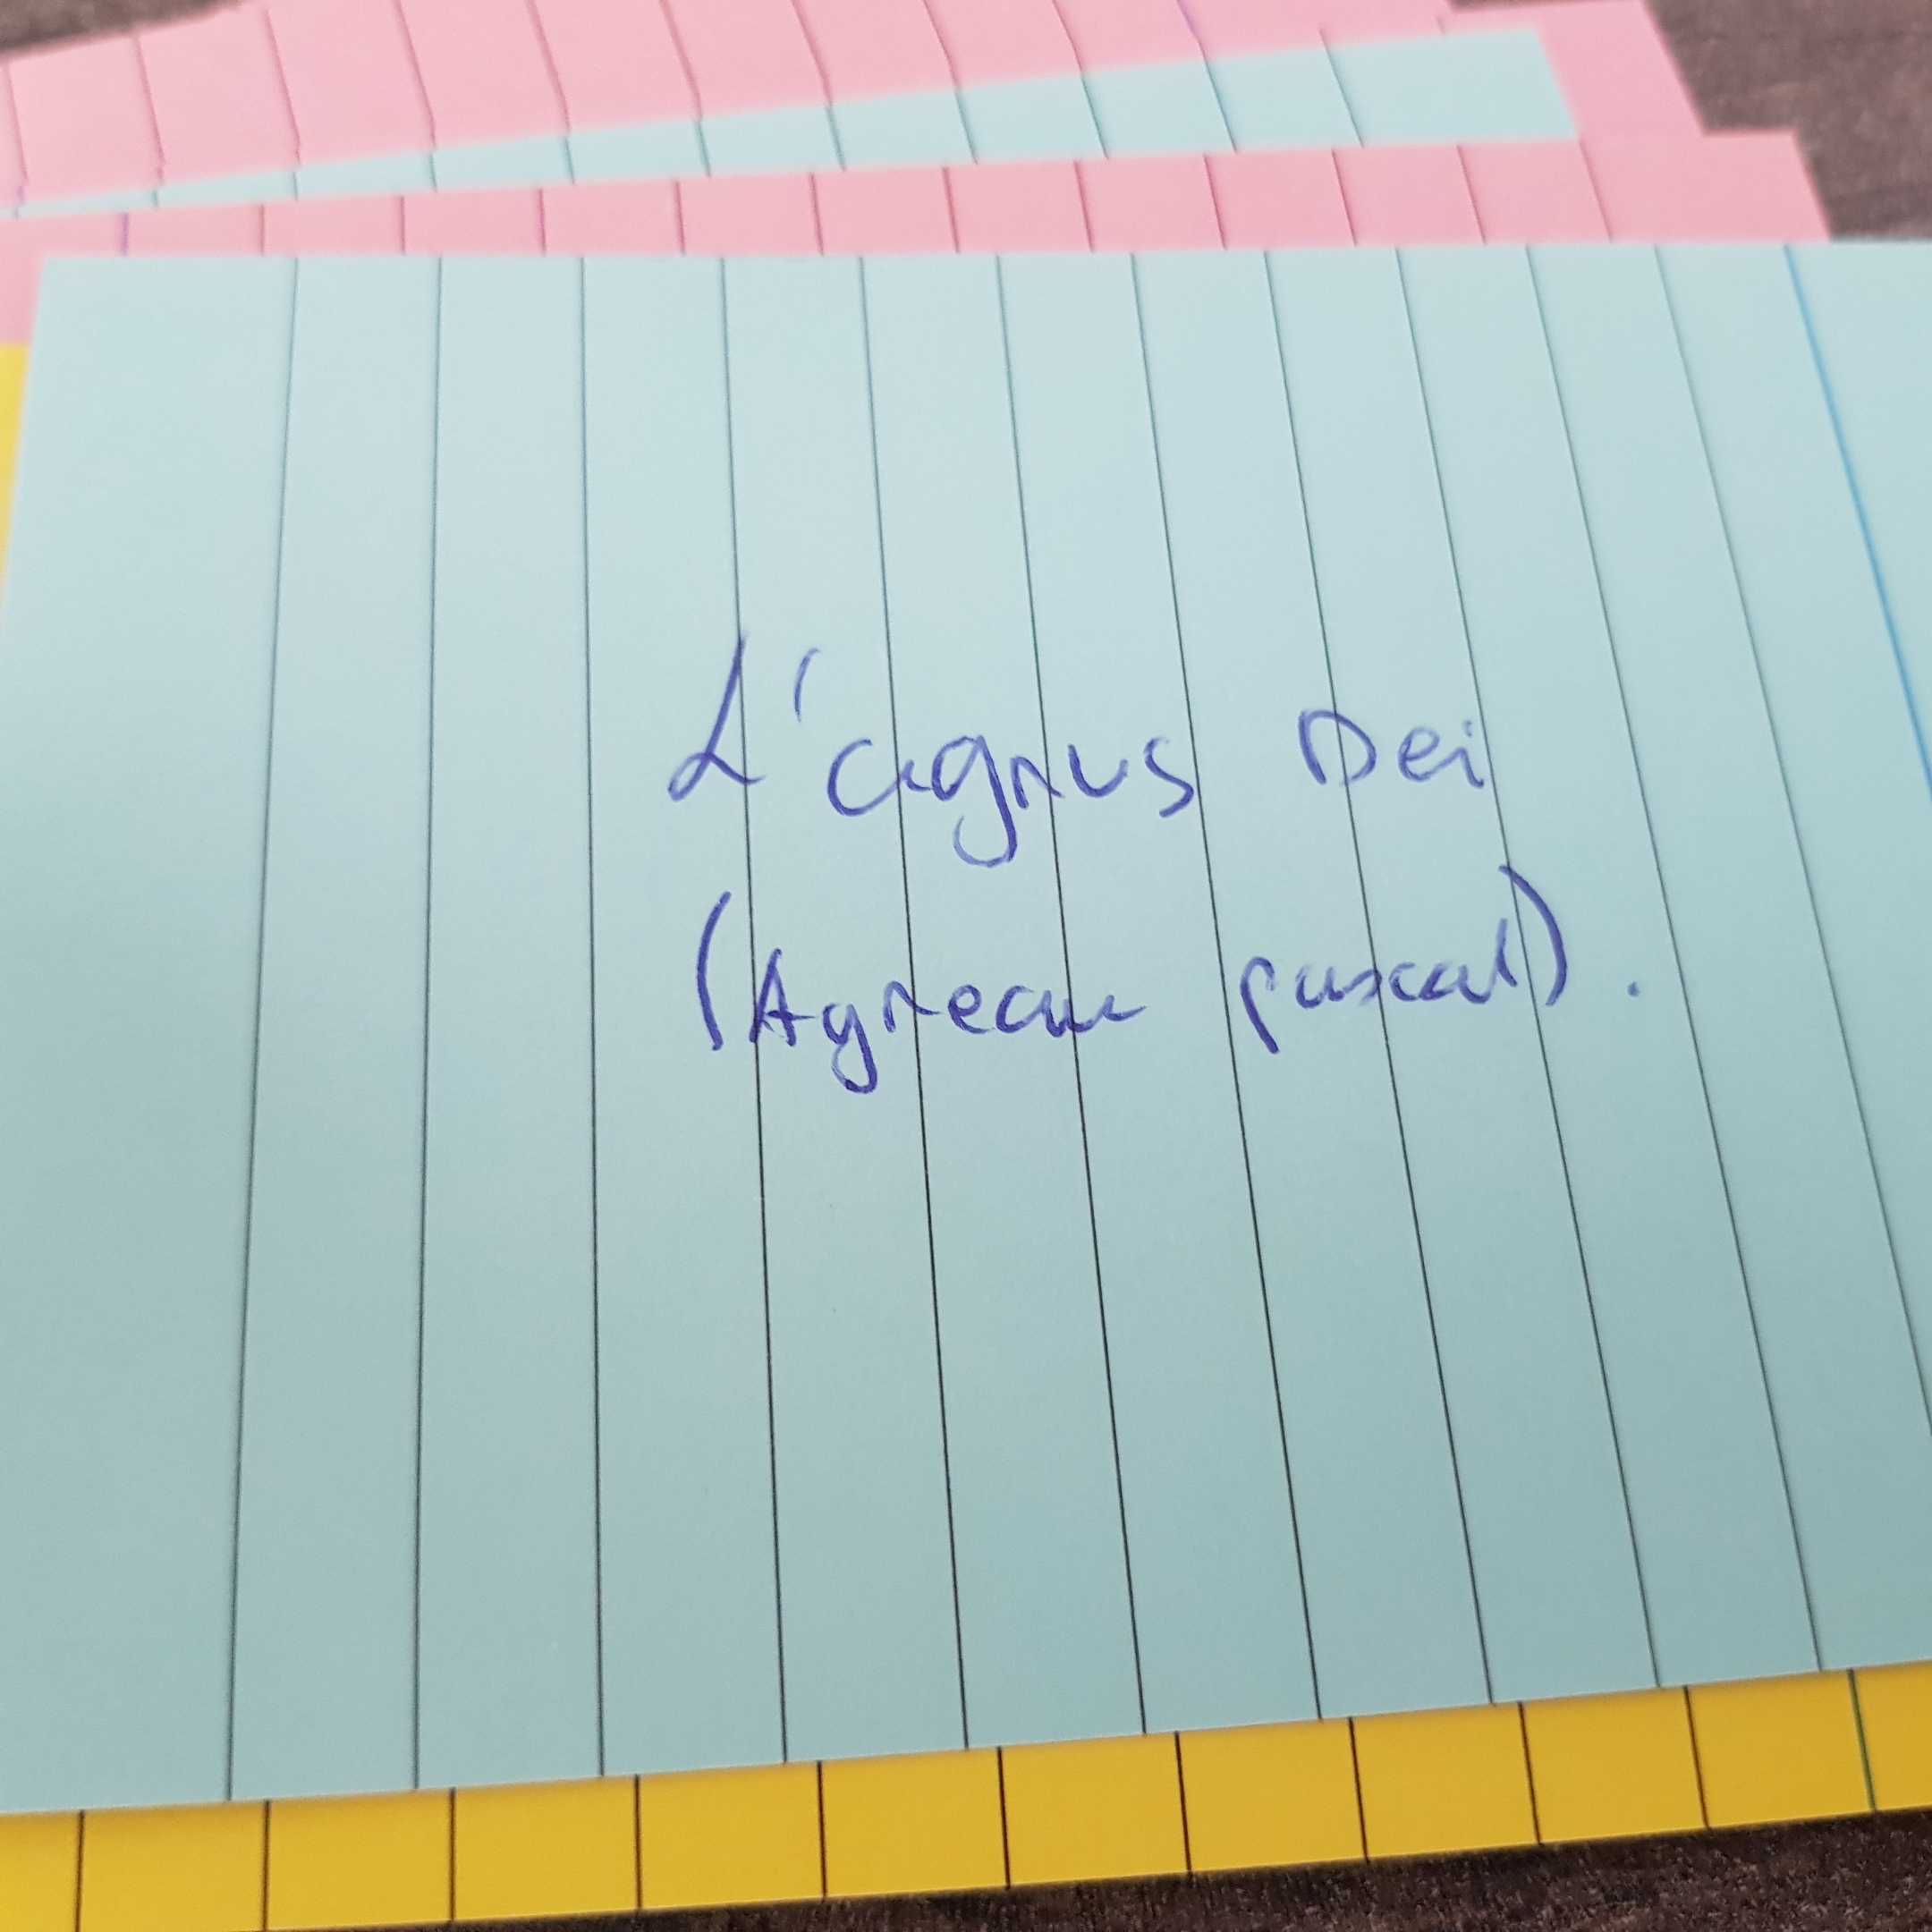 L'agnus Dei
(Agneau pascal).